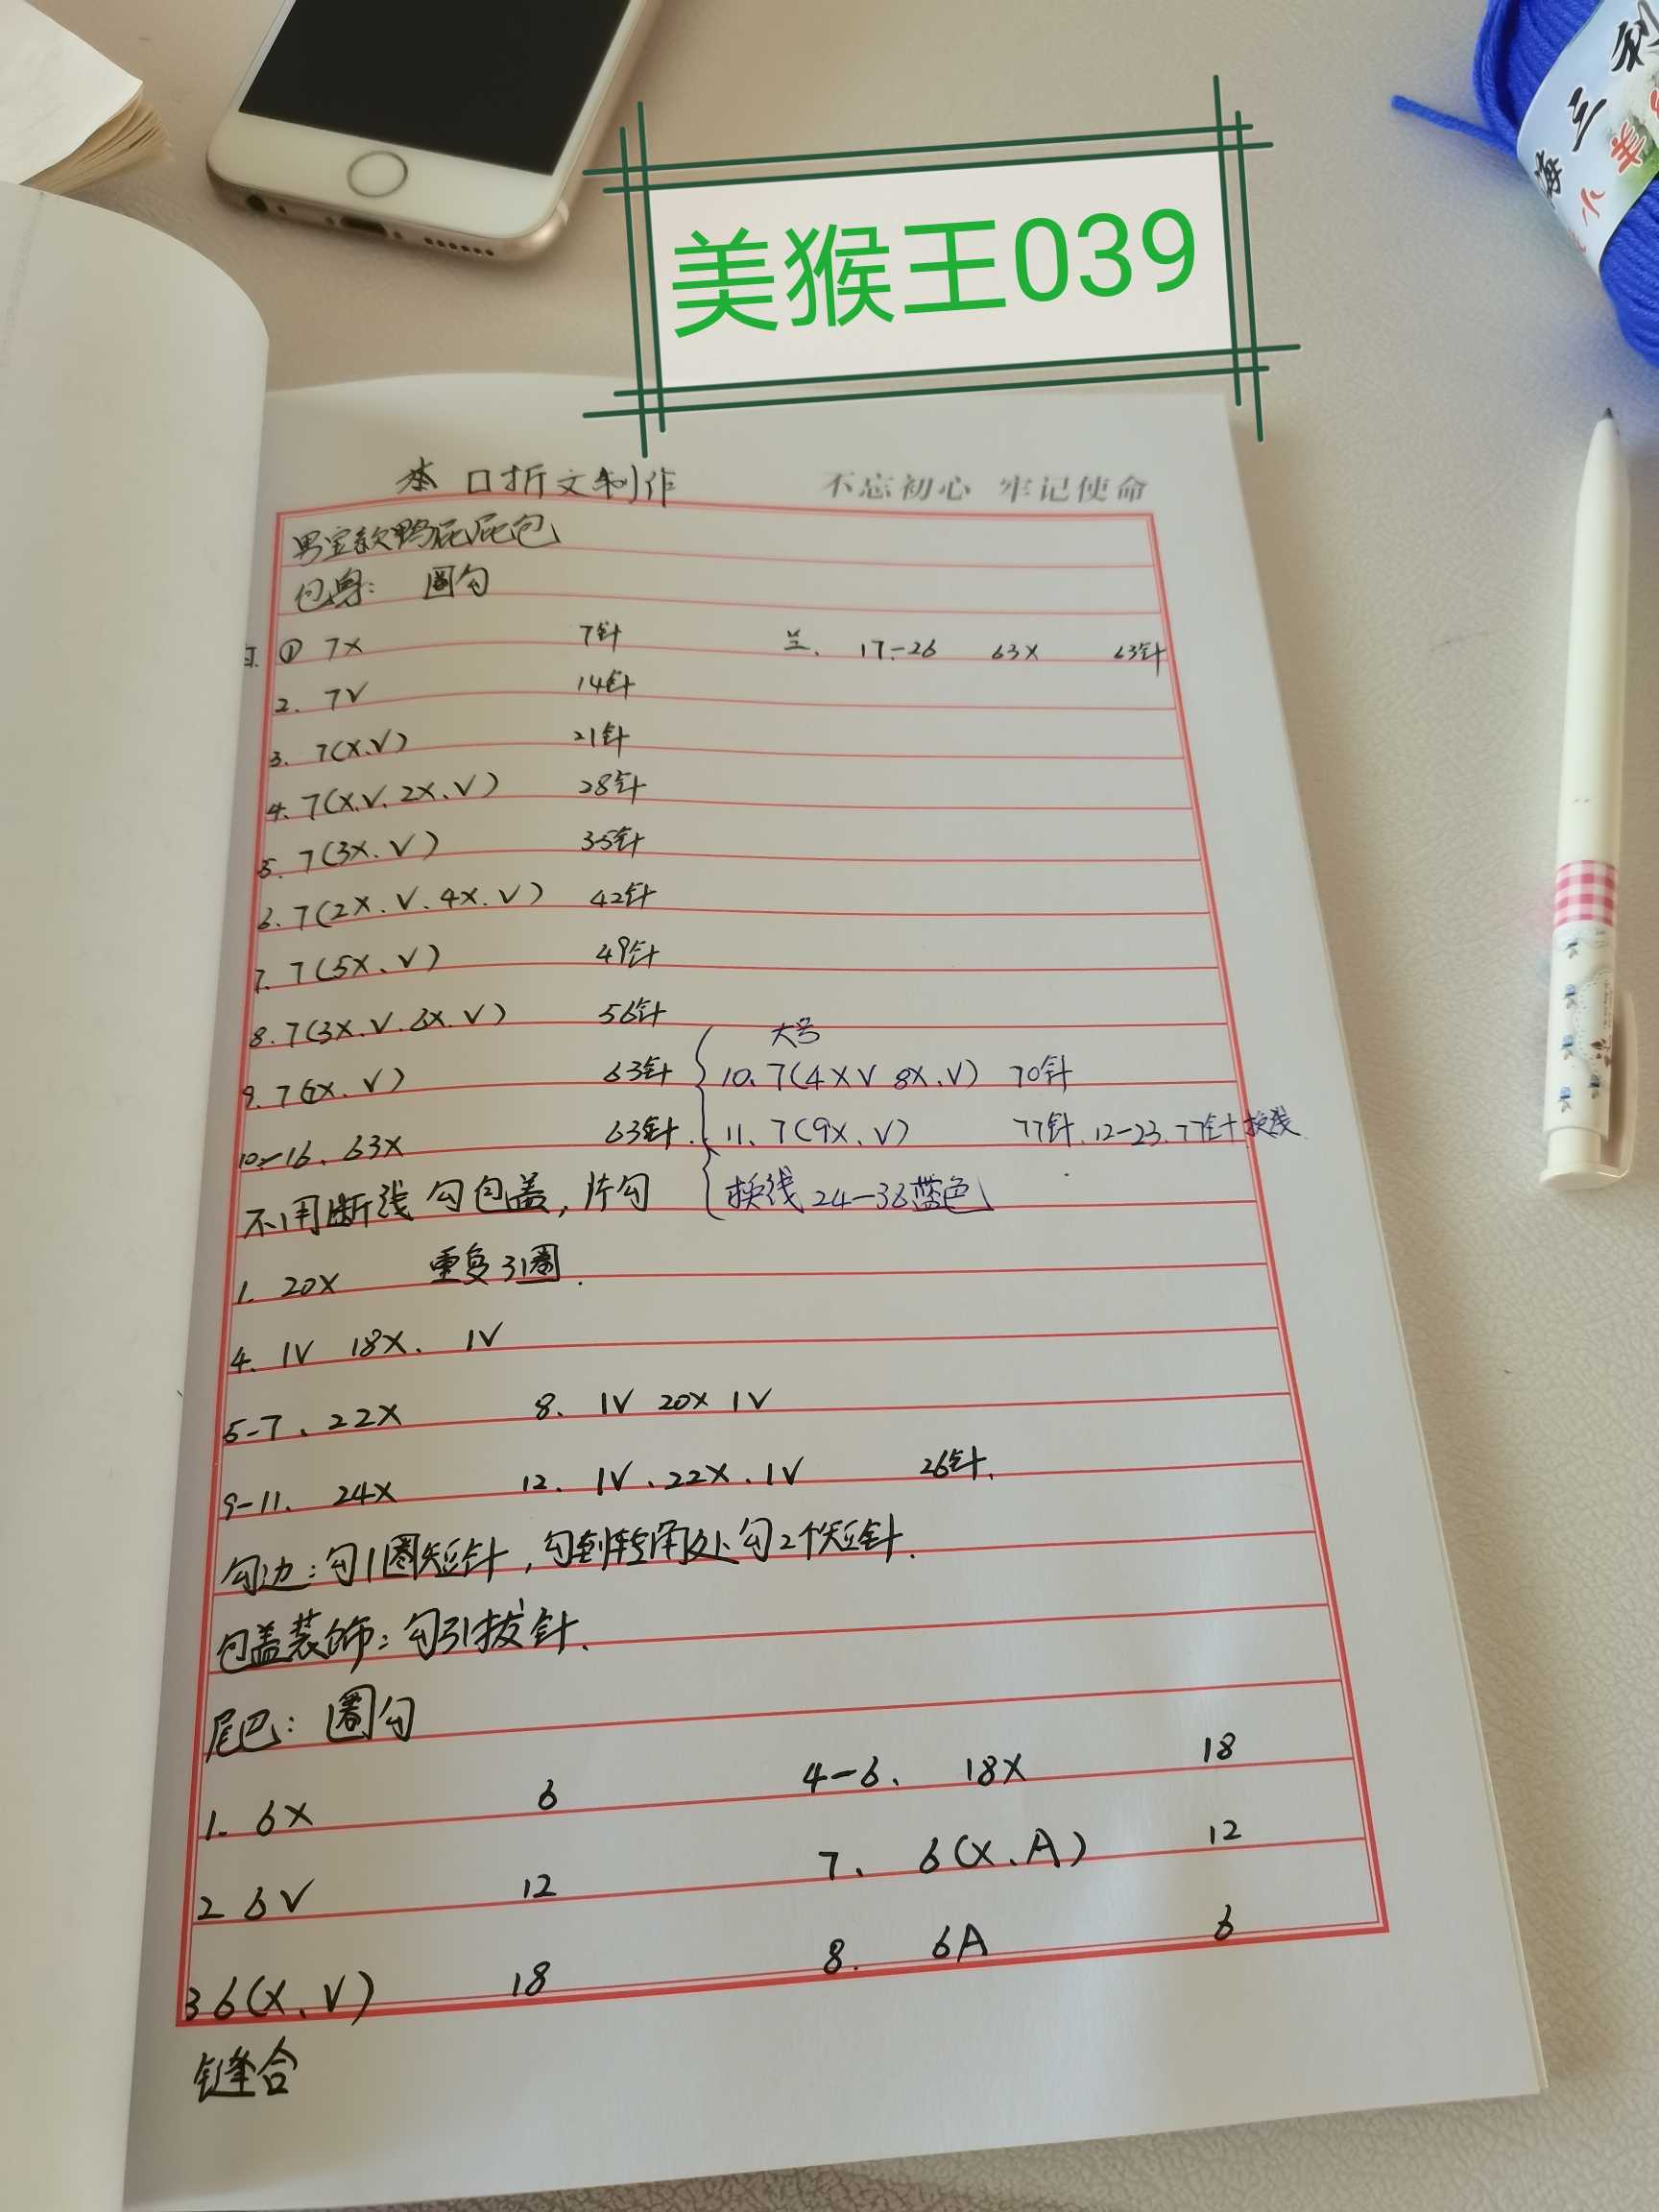 美猴王039
海三利
小羊
本口折文制作
不忘初心 牢记使命
男宝款鸭屁屁包
包身: 圈勾
① 7X 7针 兰. 17-26 63X 63针
2. 7V 14针
3. 7(X.V) 21针
4. 7(X.V.2X.V) 28针
5. 7(3X.V) 35针
6. 7(2X.V.4X.V) 42针
7. 7(5X、V) 49针
8. 7(3X.V.6X.V) 56针
大号
9. 7(7X.V) 63针 10、7(4XV 8X.V) 70针
10-16、63X 63针. 11、7(9X、V) 77针、12-23.77针换线
不用断线 勾包盖,片勾 换线24-36蓝色
1. 20X 重复3圈.
4. 1V 18X、 1V
5-7、22X 8、 1V 20X 1V
9-11、 24X 12. 1V、22X、1V 26针.
勾边:勾1圈短针,勾到转角处勾2个短针.
包盖装饰:勾引拔针、
尾巴: 圈勾
1. 6X 6 4-6、 18X 18
2 6V 12 7、 6(X、A) 12
3 6(X、V) 18 8. 6A 6
缝合